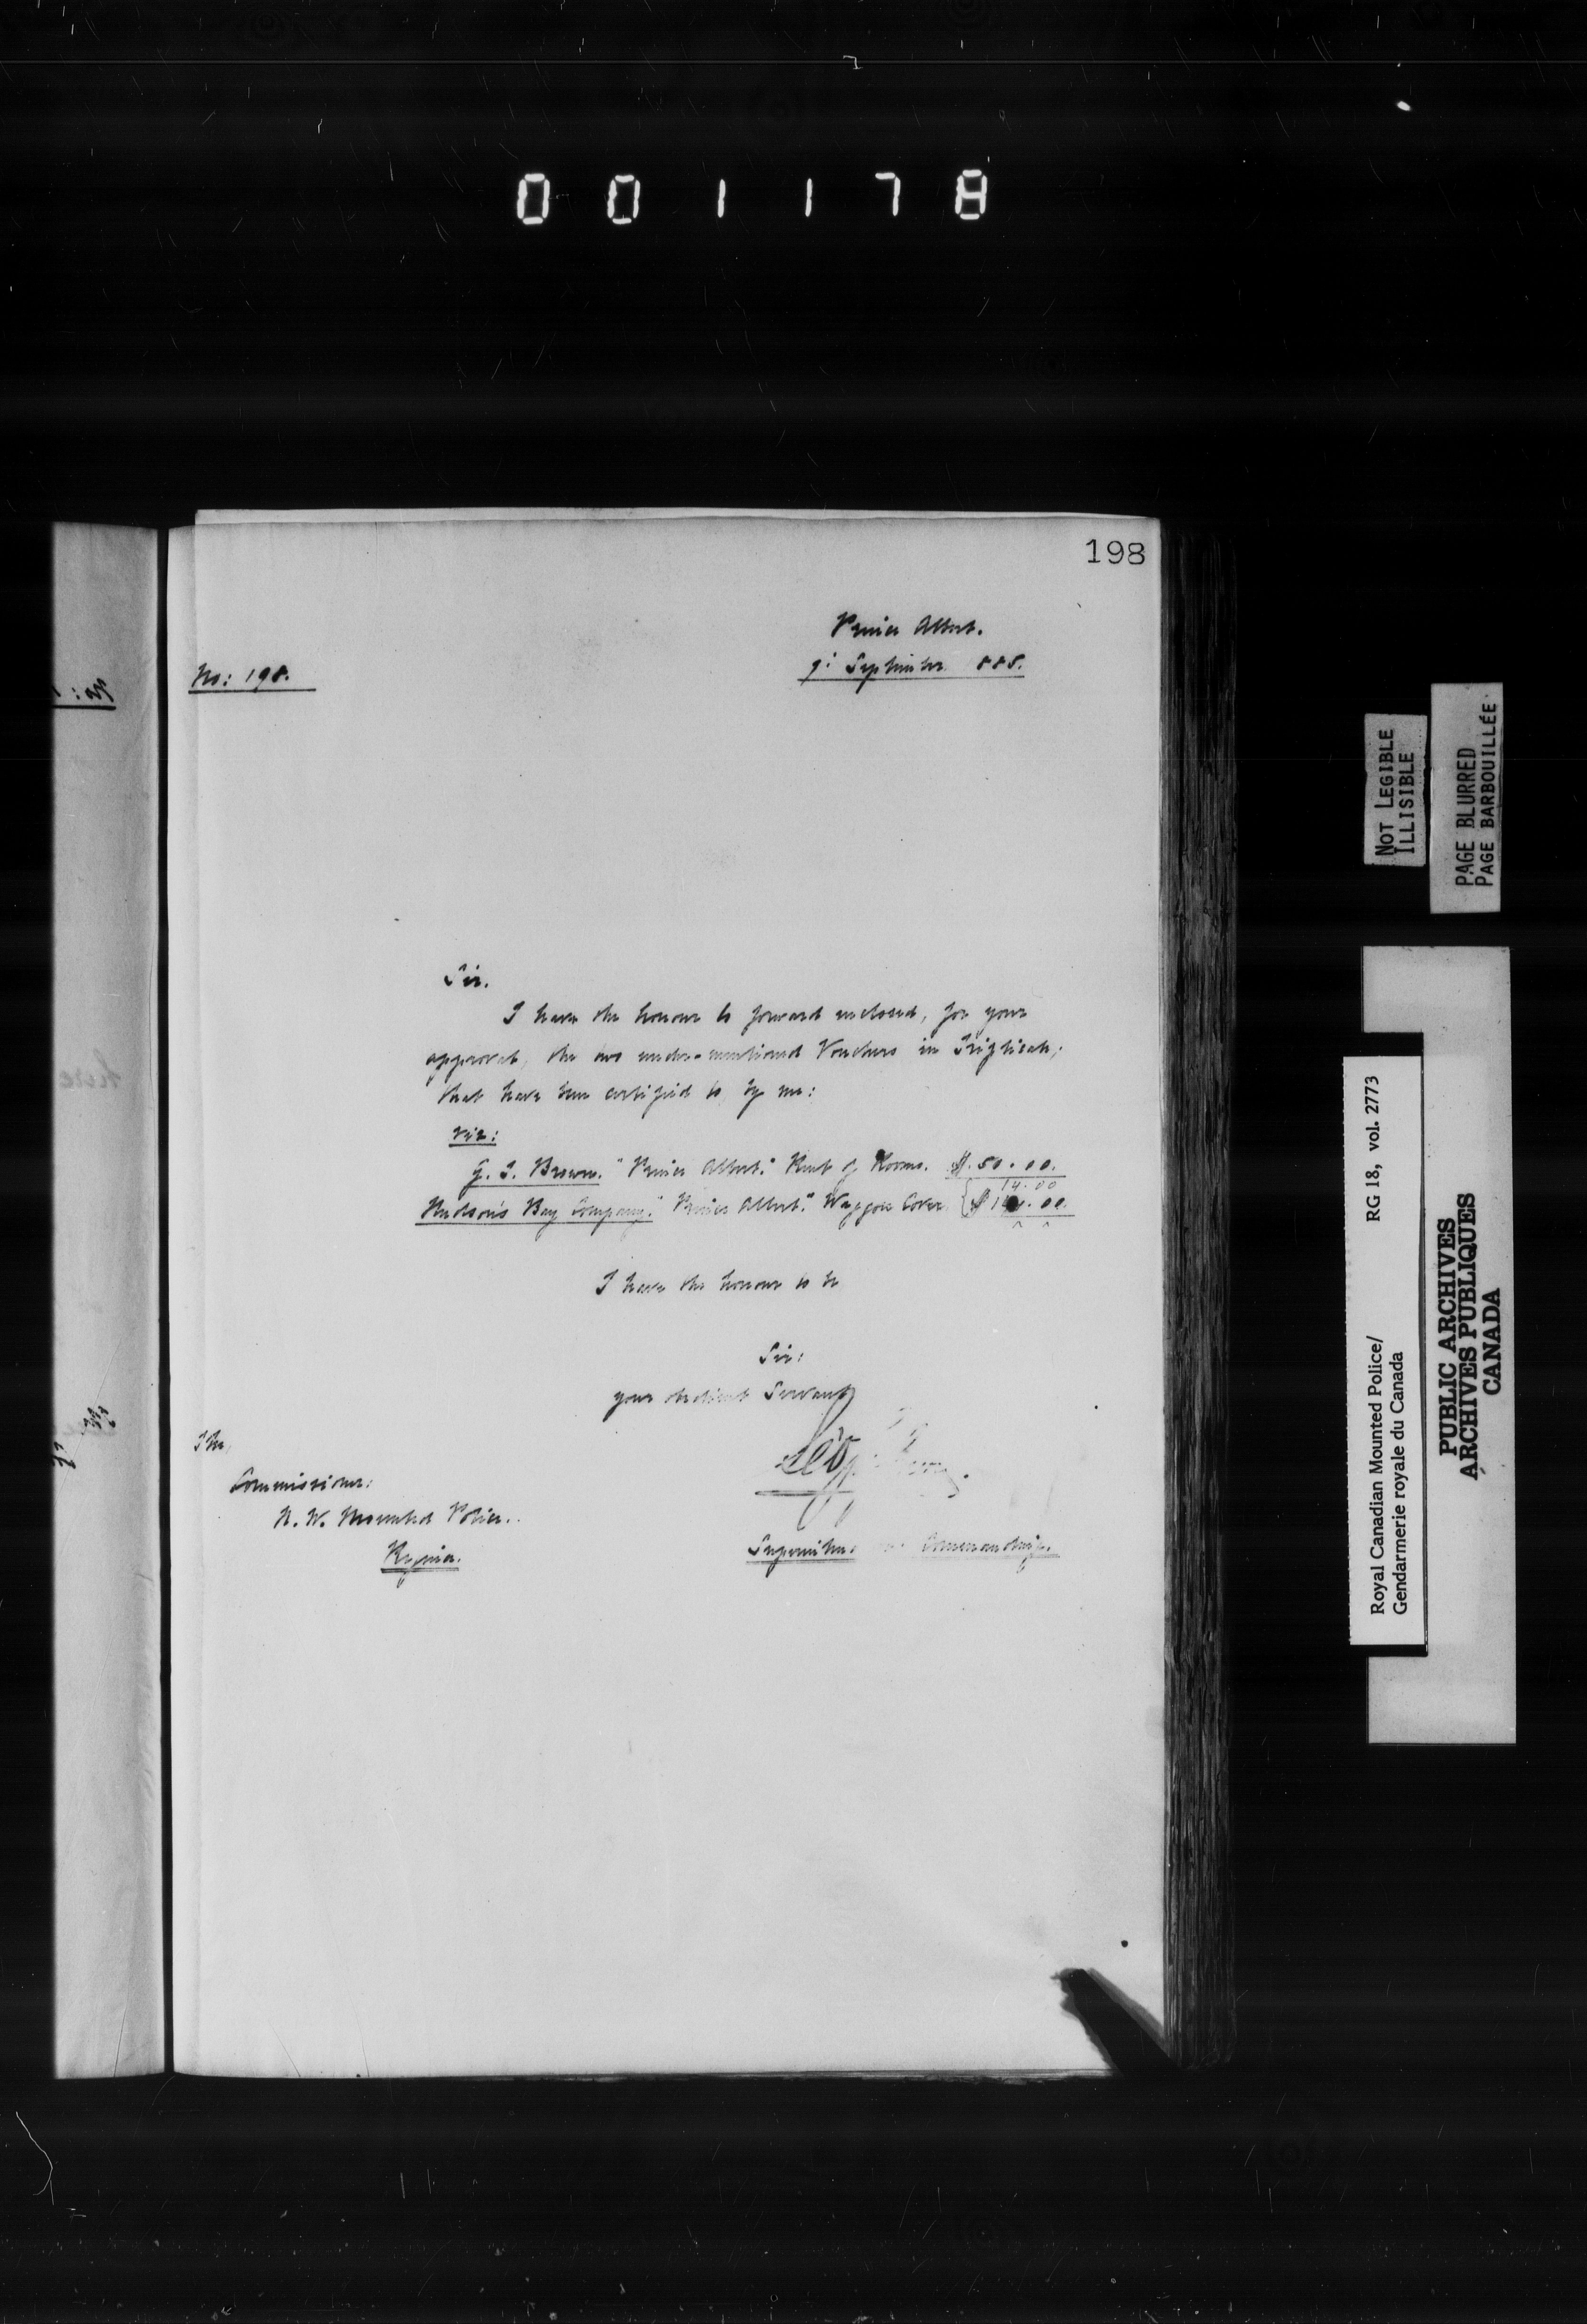 001178
198
Prince Albert.
9: September 885.
No: 198.
Sir.
I have the honour to forward enclosed, for your
approval, the two under-mentioned Vouchers in Triplicate;
that have been certified to, by me:
viz:
G. I. Brown. "Prince Albert." Rent of Rooms. $.50.00.
14.00
Hudson's Bay Company. "Prince Albert." Waggon Cover. $ .00.
I have the honour to be
Sir:
your obedient Servant
The,
Commissioner:
N. W. Mounted Police.
Regina.
Commanding.
NOT LEGIBLE
ILLISIBLE
PAGE BLURRED
PAGE BARBOUILLÉE
Royal Canadian Mounted Police/ RG 18, vol. 2773
Gendarmerie royale du Canada
PUBLIC ARCHIVES
ARCHIVES PUBLIQUES
CANADA